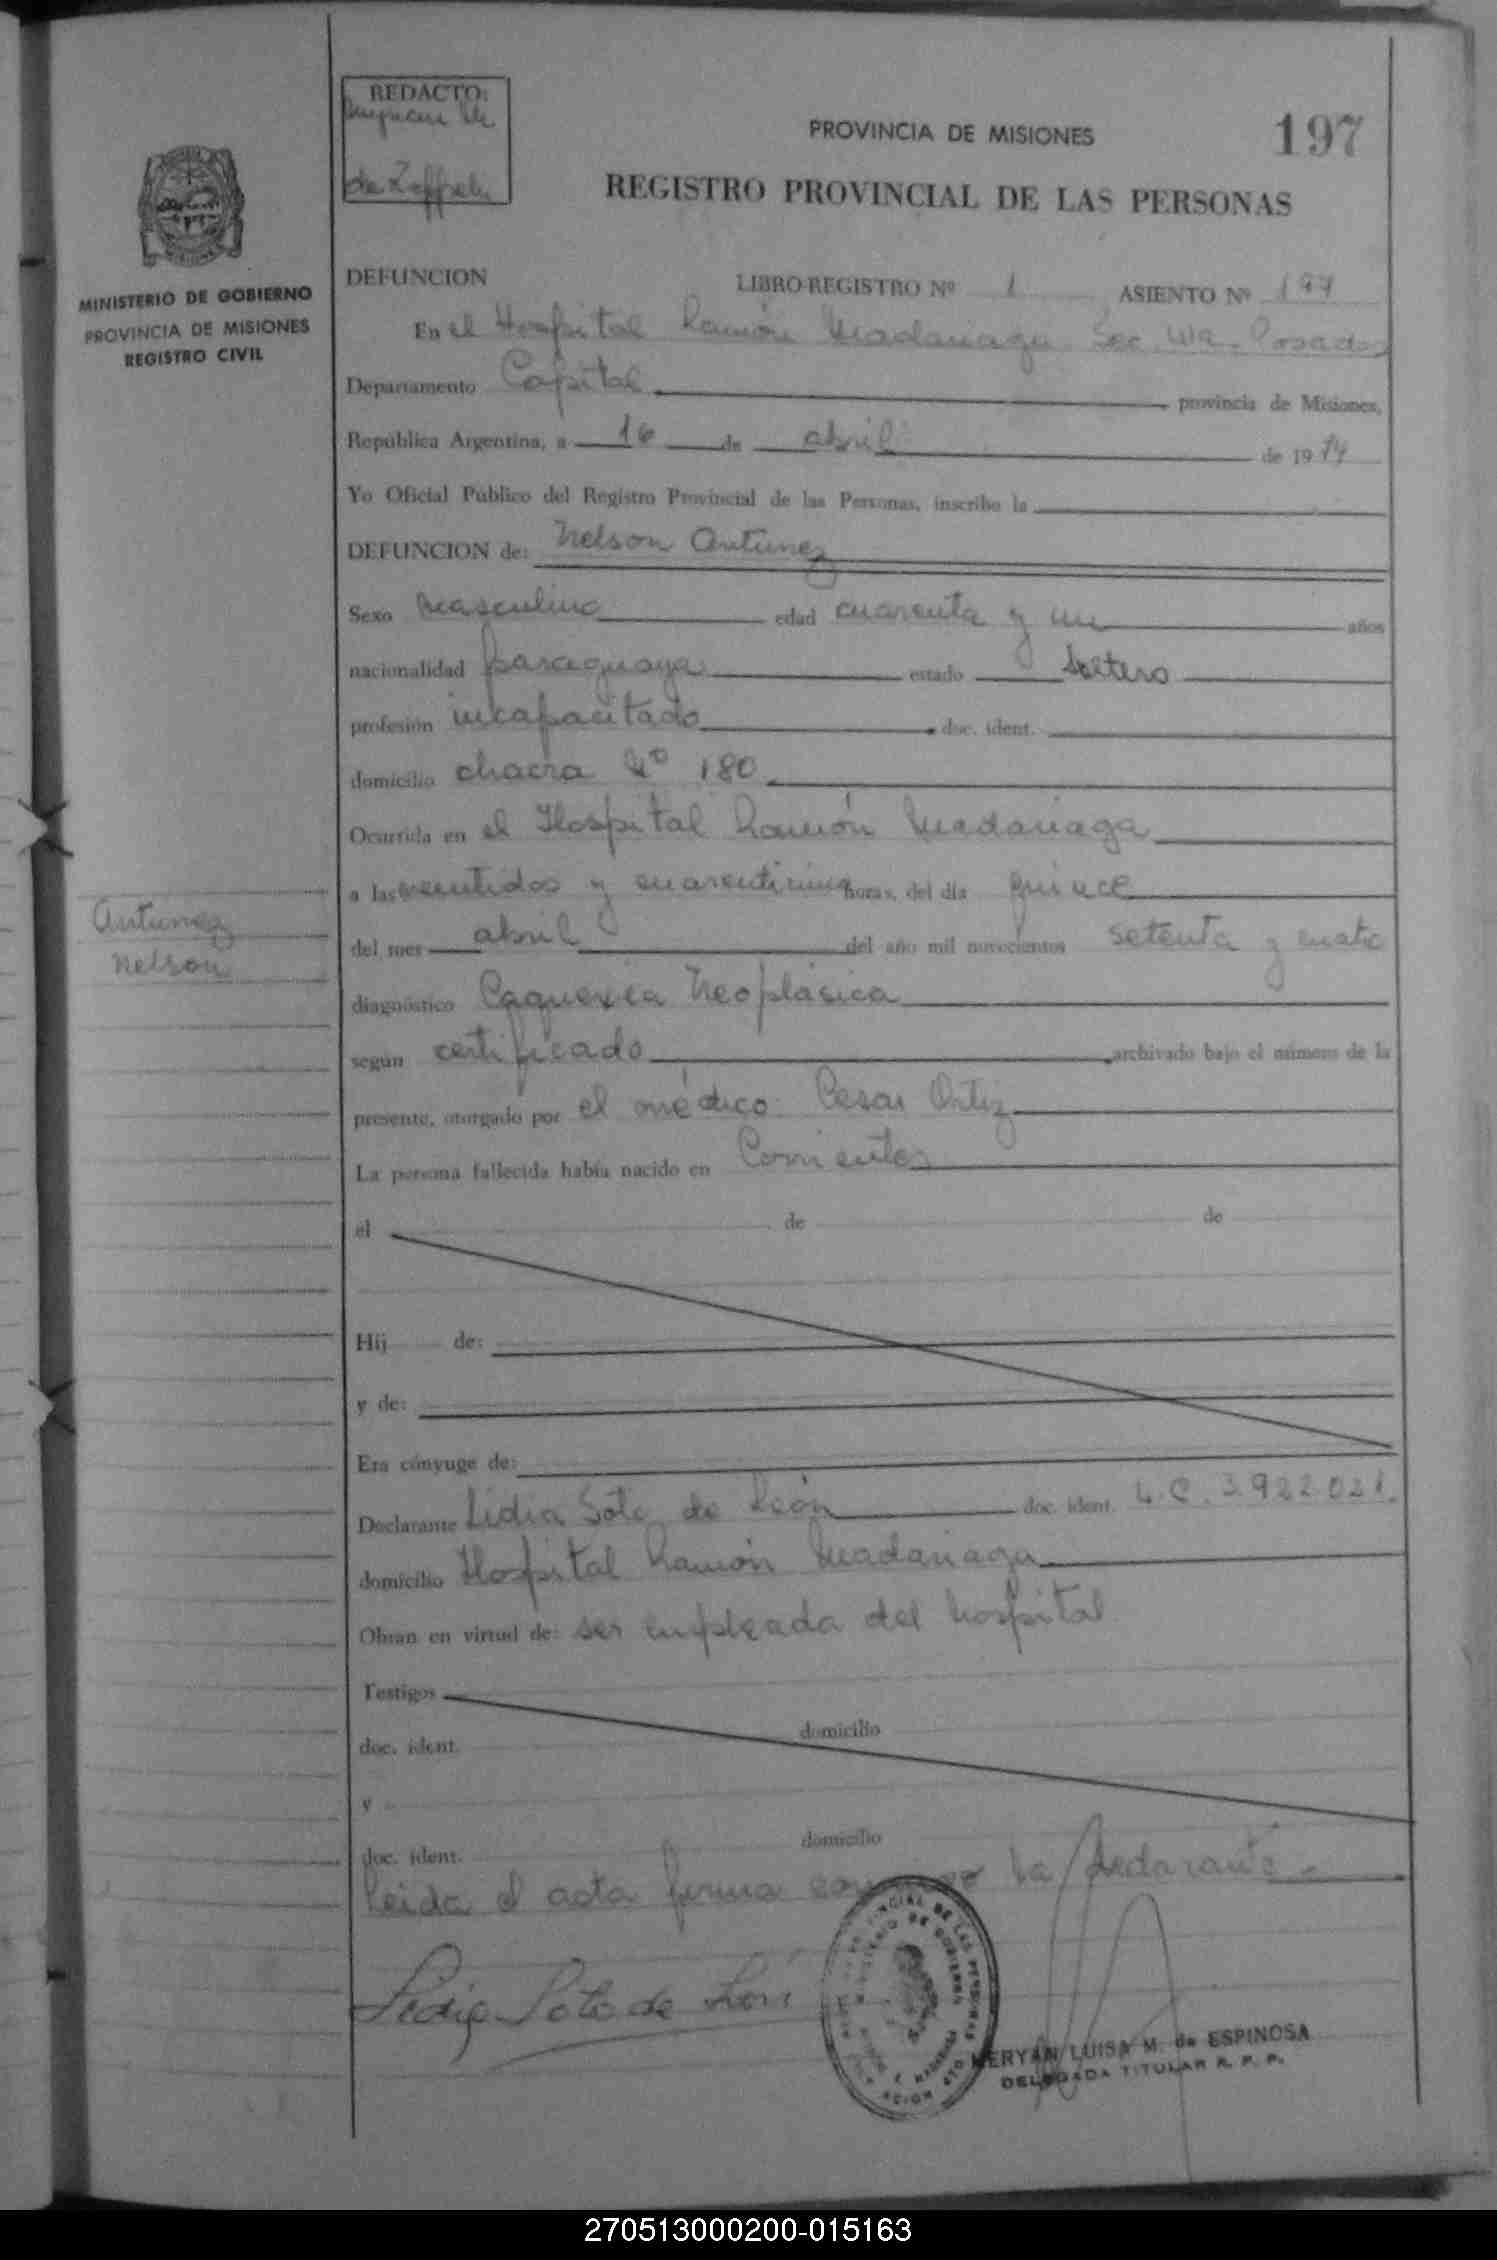 REDACTO:
de Zeffeli
PROVINCIA DE MISIONES
197
REGISTRO PROVINCIAL DE LAS PERSONAS
MINISTERIO DE GOBIERNO
PROVINCIA DE MISIONES
REGISTRO CIVIL
DEFUNCION LIBRO-REGISTRO Nº 1 ASIENTO Nº 197
En el Hospital Ramón Madariaga Sec. Posadas
Departamento Capital provincia de Misiones,
República Argentina, a 16 de abril de 1974
Yo Oficial Público del Registro Provincial de las Personas, inscribo la
DEFUNCION de: Nelson Antunez
Sexo masculino edad cuarenta y un años
nacionalidad paraguaya estado soltero
profesión incapacitado doc. ident.
domicilio chacra Nº 180
Ocurrida en el Hospital Ramón Madariaga
a las veintidos y horas, del día quince
Antunez
Nelson
del mes abril del año mil novecientos setenta y cuatro
diagnóstico Caquexia Neoplásica
según certificado archivado bajo el número de la
presente, otorgado por el médico Cesar Ortiz
La persona fallecida había nacido en Corrientes
el de de
Hij de:
y de:
Era cónyuge de:
Declarante Lidia Soto de León doc. ident. L.C. 3.922.021.
domicilio Hospital Ramón Madariaga
Obran en virtud de: ser empleada del hospital
Testigos
doc. ident. domicilio
y
doc. ident. domicilio
Leida el acta firma la declarante
Lidia Soto de León
MERYAN LUISA M. de ESPINOSA
DELEGADA TITULAR R. P. P.
270513000200-015163